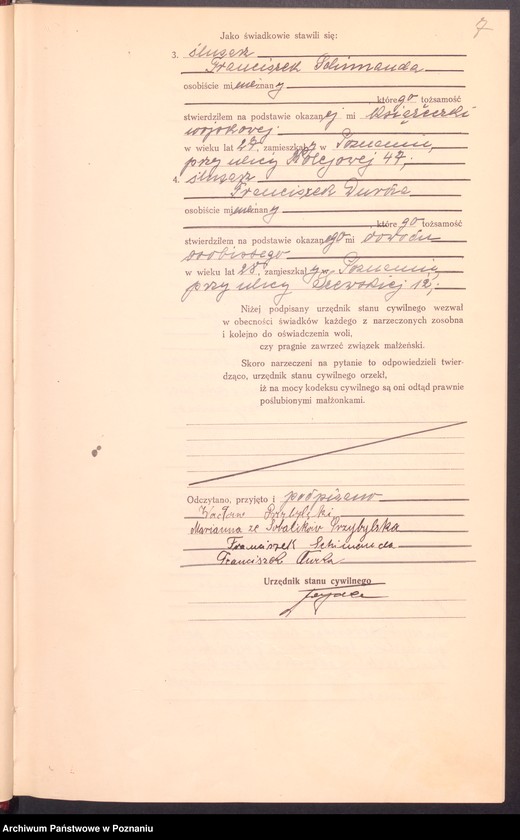 7
Jako świadkowie stawili się:
3. ślusarz
Franciszek
osobiście mi nieznany
, którego tożsamość
stwierdziłem na podstawie okazanej mi książeczki
wojskowej
w wieku lat 27, zamieszkały w Poznaniu,
przy ulicy Kolejowej 47,
4. ślusarz
Franciszek Durka
osobiście mi nieznany
, którego tożsamość
stwierdziłem na podstawie okazanego mi dowodu
osobistego
w wieku lat 28, zamieszkały w Poznaniu,
przy ulicy 12,
Niżej podpisany urzędnik stanu cywilnego wezwał
w obecności świadków każdego z narzeczonych zosobna
i kolejno do oświadczenia woli,
czy pragnie zawrzeć związek małżeński.
Skoro narzeczeni na pytanie to odpowiedzieli twier-
dząco, urzędnik stanu cywilnego orzekł,
iż na mocy kodeksu cywilnego są oni odtąd prawnie
poślubionymi małżonkami.
Odczytano, przyjęto i podpisano
Wacław Przybylski
Marianna ze Sobalików Przybylska
Franciszek
Franciszek Durka
Urzędnik stanu cywilnego
Archiwum Państwowe w Poznaniu